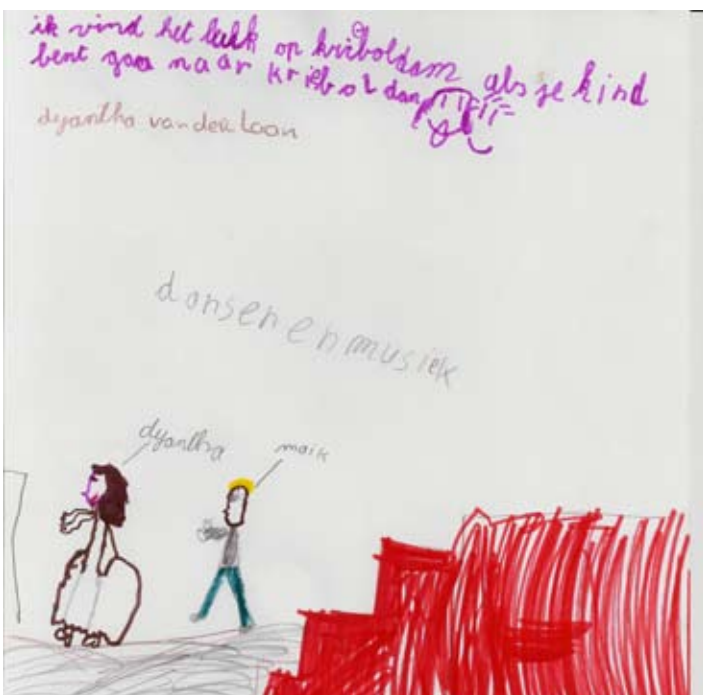 ik vind het leuk op kriboldam als je kind
bent gaa naar kriebol dam
dyantha van der Loon
dansen en musiek
dyantha
maik